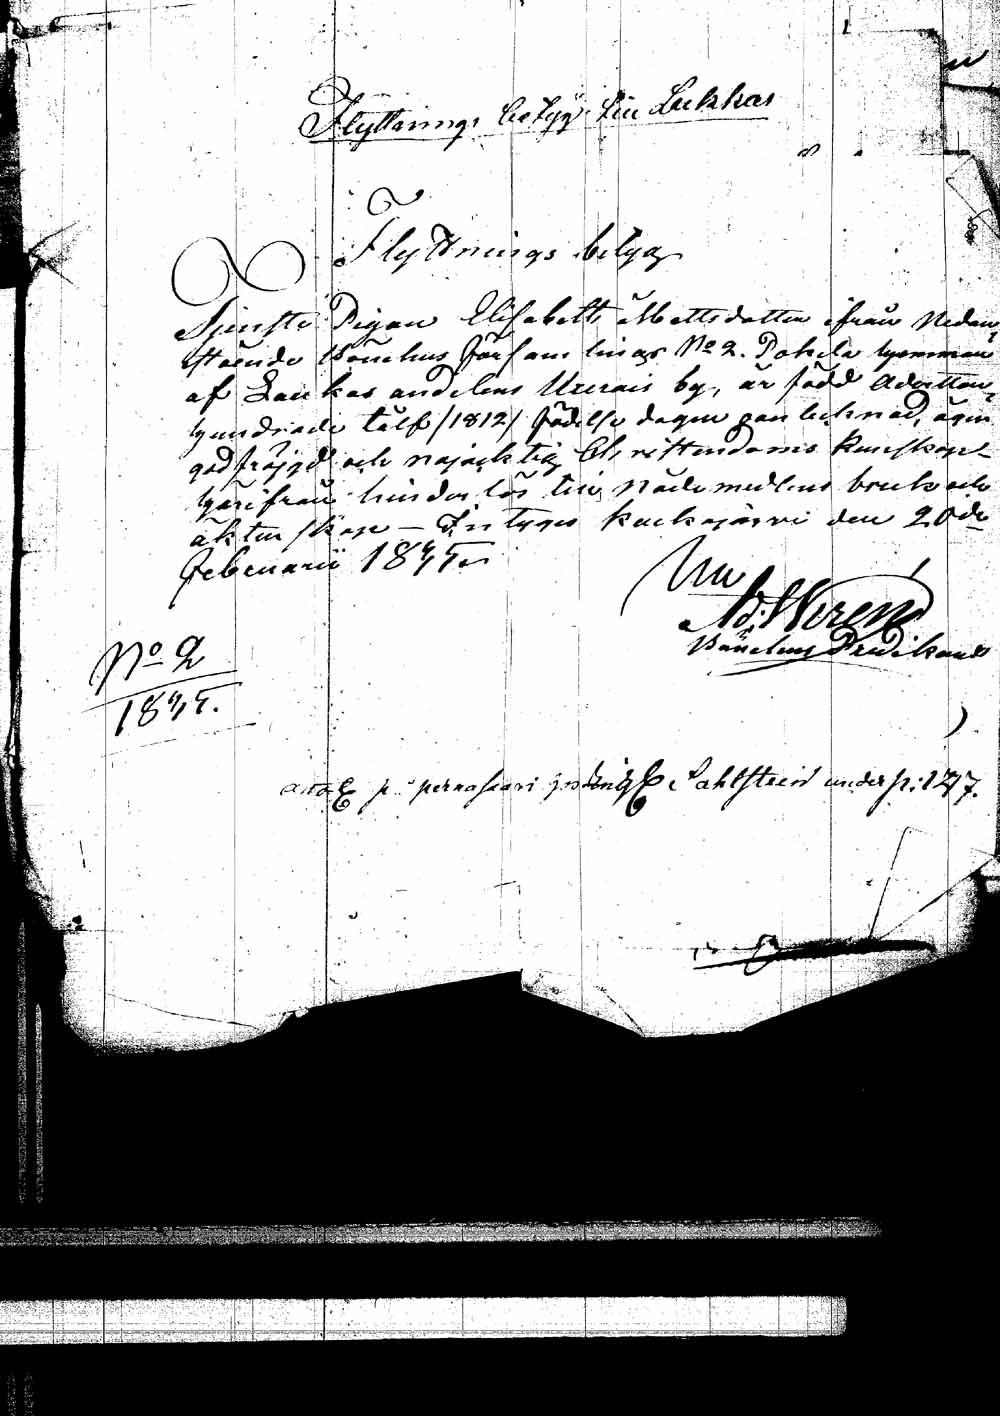 Flyttnings betyg till Lukkar
Flyttnings betyg
Tjenste Pigan Elisabeth Mattsdotter ifrån Nedan-
stående Bönehus församlings No 2. Pokela hemman
af Laukas andelens by, är född Adertton-
hundrade tålf /1812/ födelse dagen oantecknad, äger
god fräjgd och nöjacktig Christendoms kunskap
härifrån hinderlös till nådemedlens bruk och
äktenskap — Intygas den 20de
Februarii 1845.
Ad. Wirén
Bönehus Predikant
No 2
1845.
p. under p: 127.